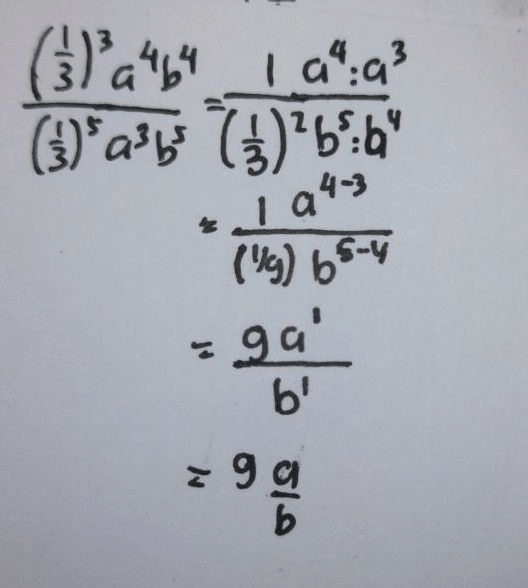 (1/3)³a⁴b⁴ / (1/3)⁵a³b⁵ = 1 a⁴:a³ / (1/3)²b⁵:b⁴
= 1 a⁴⁻³ / (1/9) b⁵⁻⁴
= 9a¹ / b¹
= 9 a/b